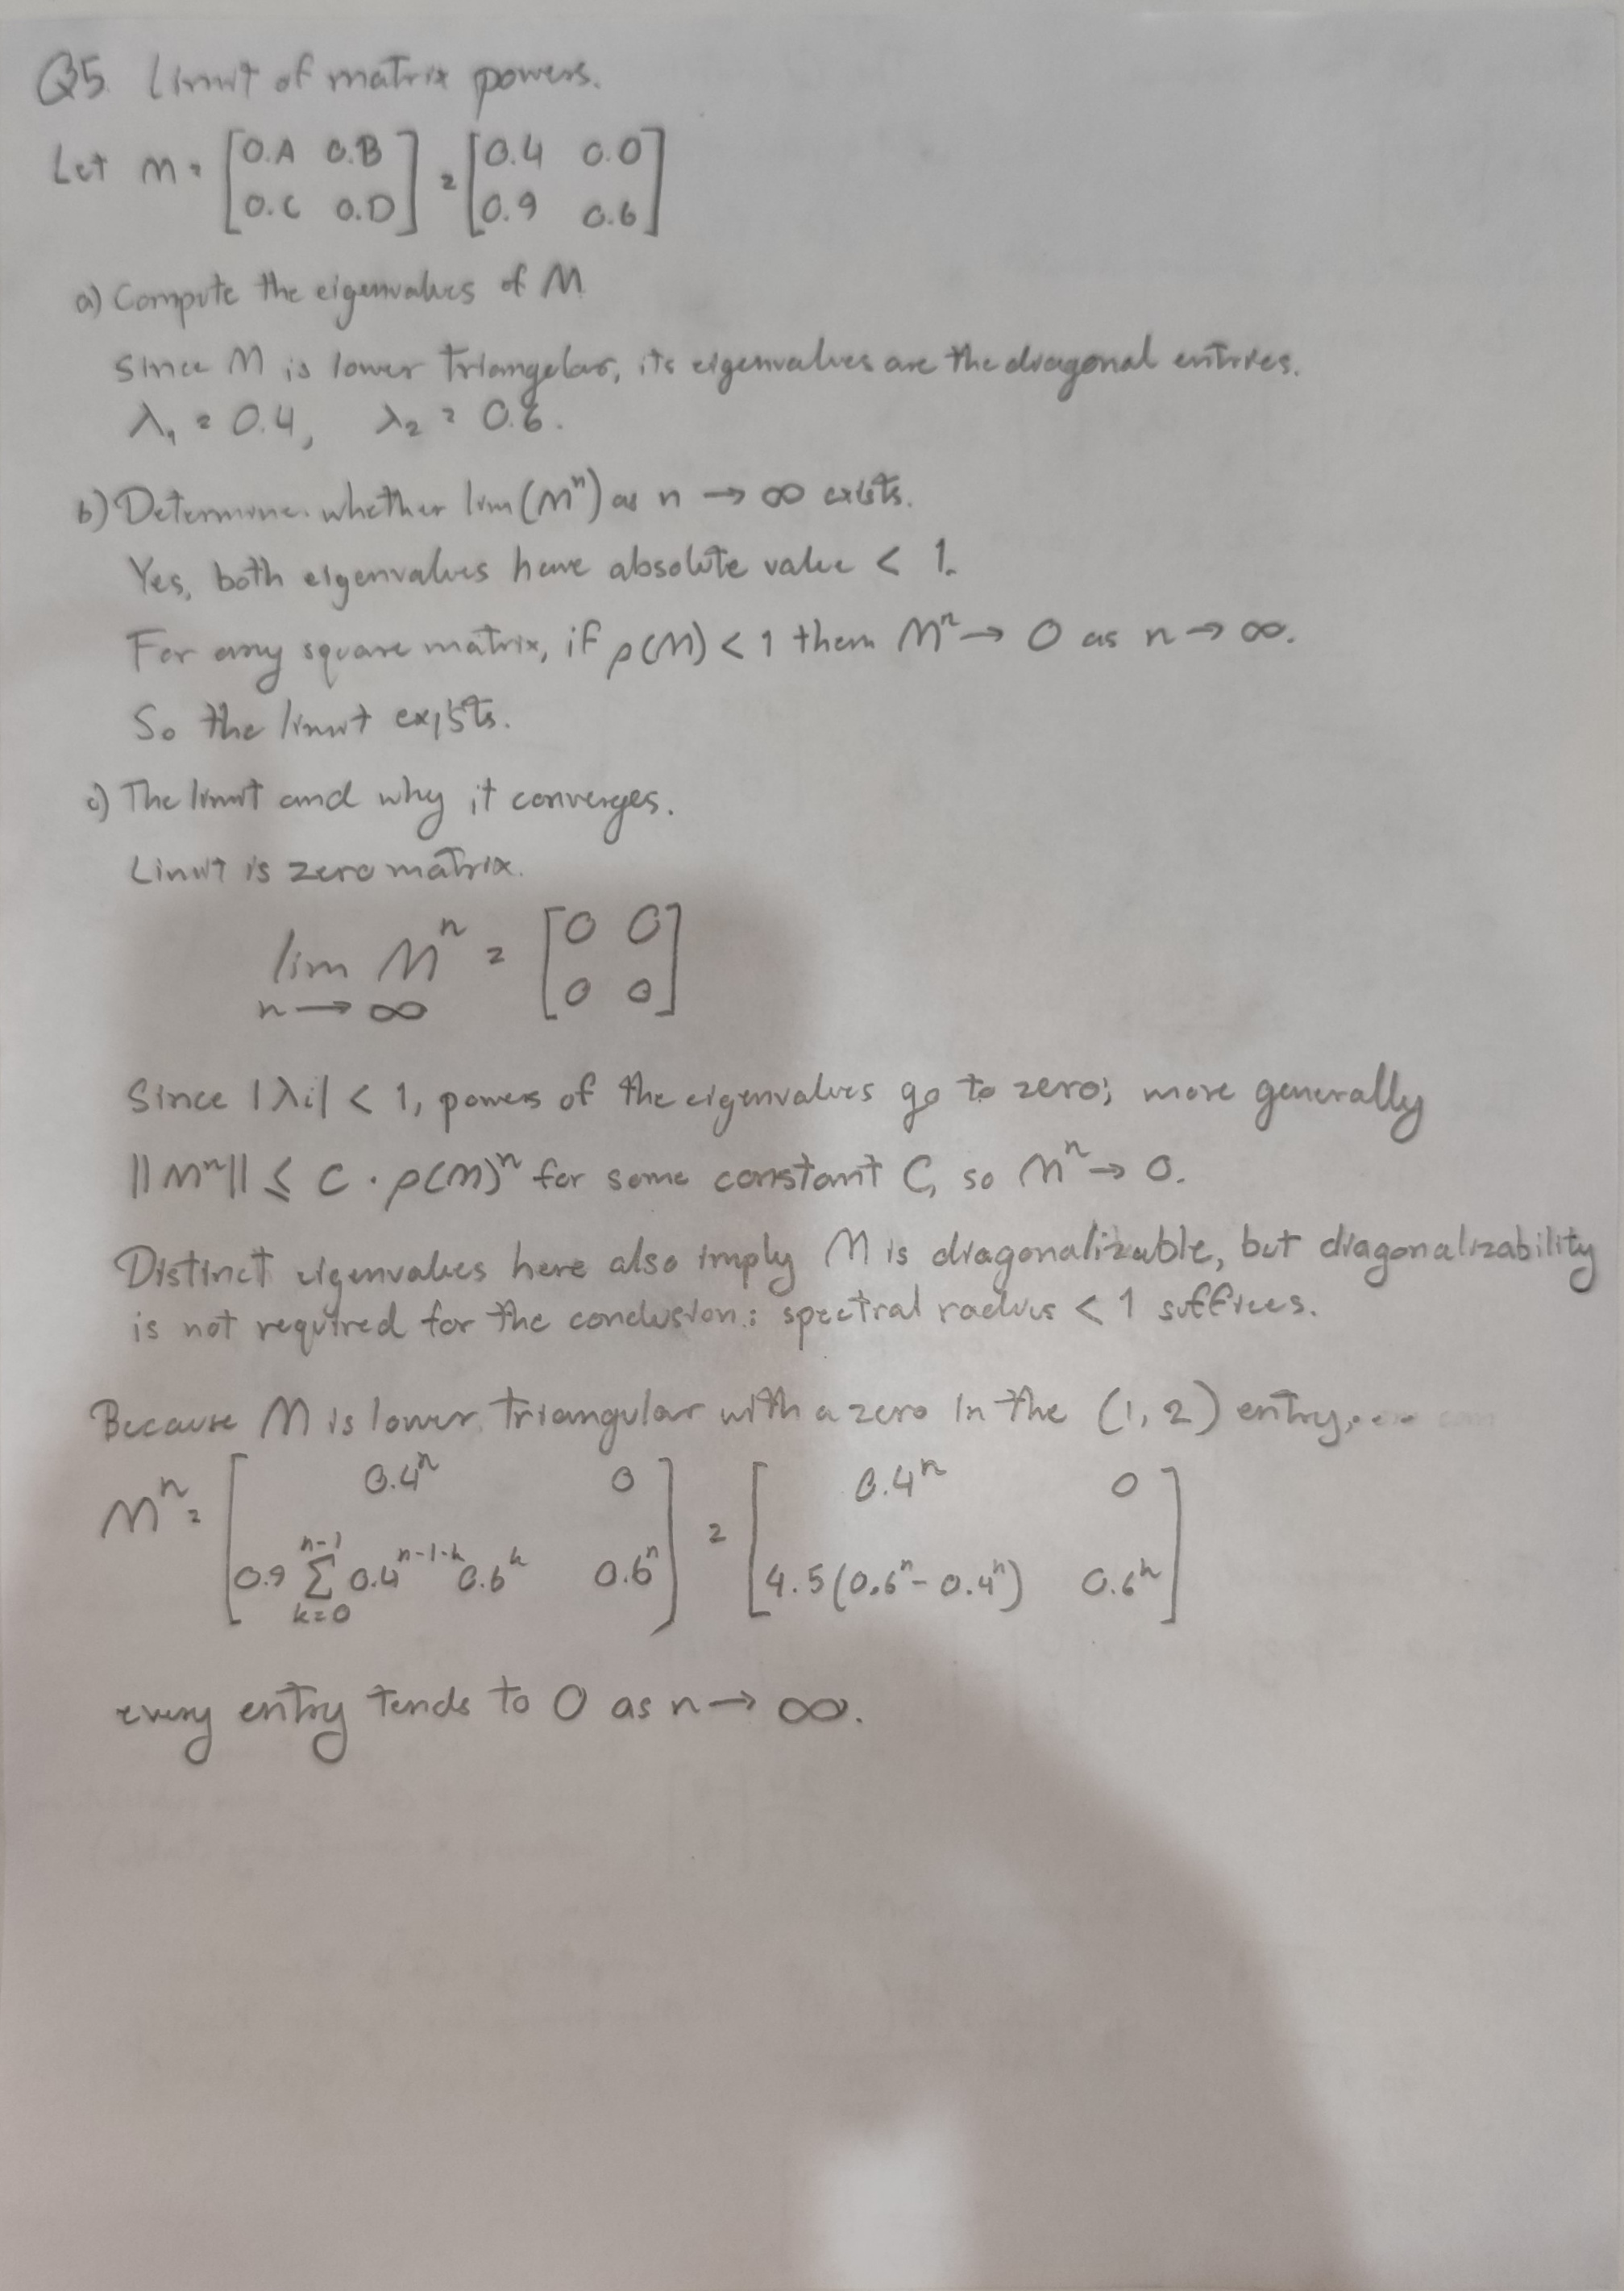 Q5. Limit of matrix powers.
Let M = [0.A 0.B
0.C 0.D] = [0.4 0.0
0.9 0.6]
a) Compute the eigenvalues of M
Since M is lower triangular, its eigenvalues are the diagonal entries.
λ₁ = 0.4, λ₂ = 0.6.
b) Determine whether lim(Mⁿ) as n → ∞ exists.
Yes, both eigenvalues have absolute value < 1.
For any square matrix, if ρ(M) < 1 then Mⁿ → 0 as n → ∞.
So the limit exists.
c) The limit and why it converges.
Limit is zero matrix.
lim Mⁿ = [0 0
n → ∞ 0 0]
Since |λi| < 1, powers of the eigenvalues go to zero; more generally
||Mⁿ|| ≤ C · ρ(M)ⁿ for some constant C, so Mⁿ → 0.
Distinct eigenvalues here also imply M is diagonalizable, but diagonalizability
is not required for the conclusion: spectral radius < 1 suffices.
Because M is lower triangular with a zero in the (1, 2) entry,
Mⁿ = [0.4ⁿ 0 = [0.4ⁿ 0
0.9 Σ_{k=0}^{n-1} 0.4^{n-1-k} 0.6^k 0.6ⁿ] 4.5(0.6ⁿ - 0.4ⁿ) 0.6ⁿ]
every entry tends to 0 as n → ∞.